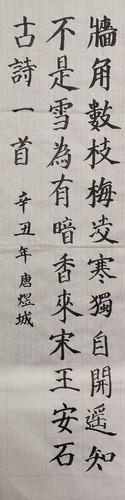 牆角數枝梅凌寒獨自開遥知
不是雪為有暗香來宋王安石
古詩一首
辛丑年唐煜城